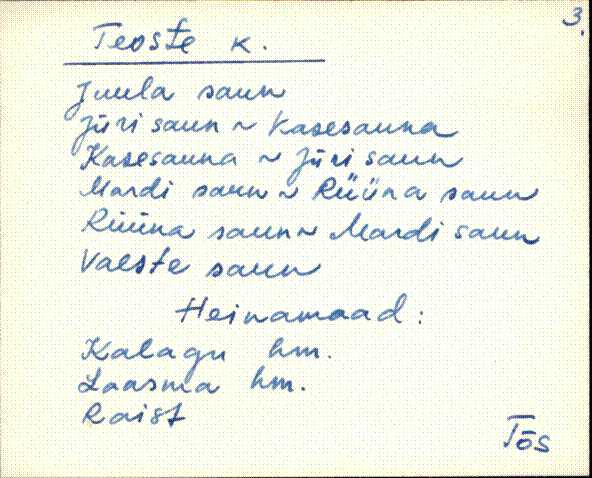 3.
Teoste k.
Juula saun
Jüri saun ~ Kasesauna
Kasesauna ~ Jüri saun
Mardi saun ~ Rüüna saun
Rüüna saun ~ Mardi saun
Vaeste saun
Heinamaad:
Kalagu hm.
Laasma hm.
Raist
Tõs